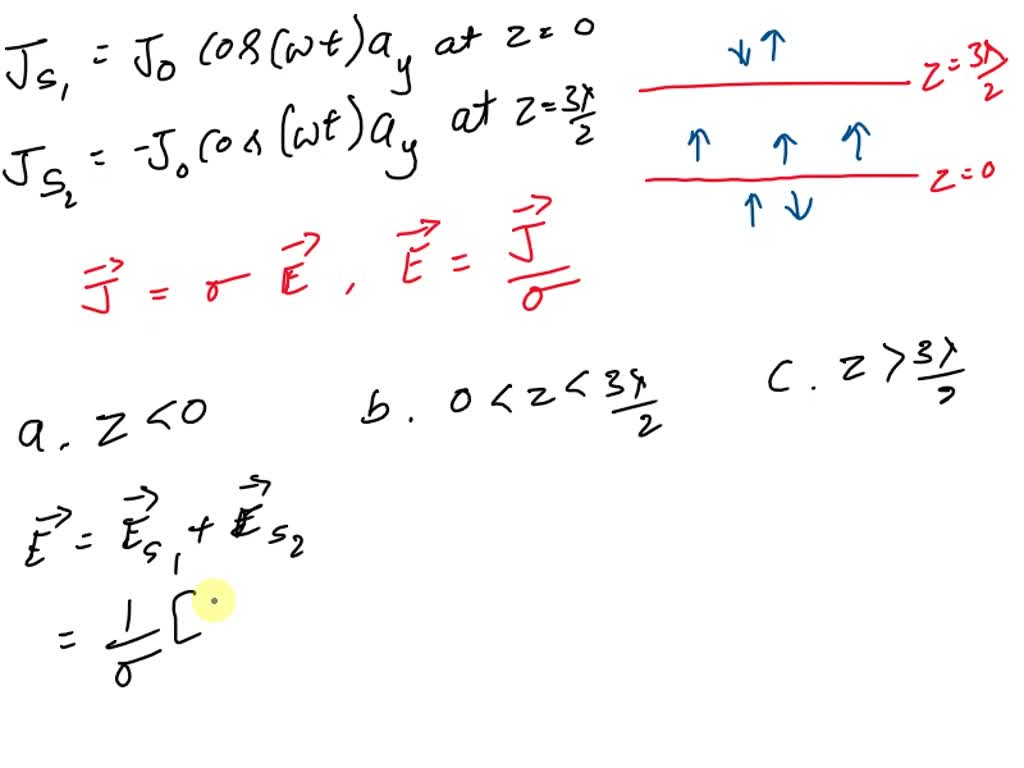 J_S₁ = J₀ cos(ωt) a_y at z = 0
J_S₂ = -J₀ cos(ωt) a_y at z = 3λ/2
z = 3λ/2
z = 0
J⃗ = σ E⃗ , E⃗ = J⃗/σ
a. z < 0
b. 0 < z < 3λ/2
c. z > 3λ/2
E⃗ = E⃗_S₁ + E⃗_S₂
= 1/σ [